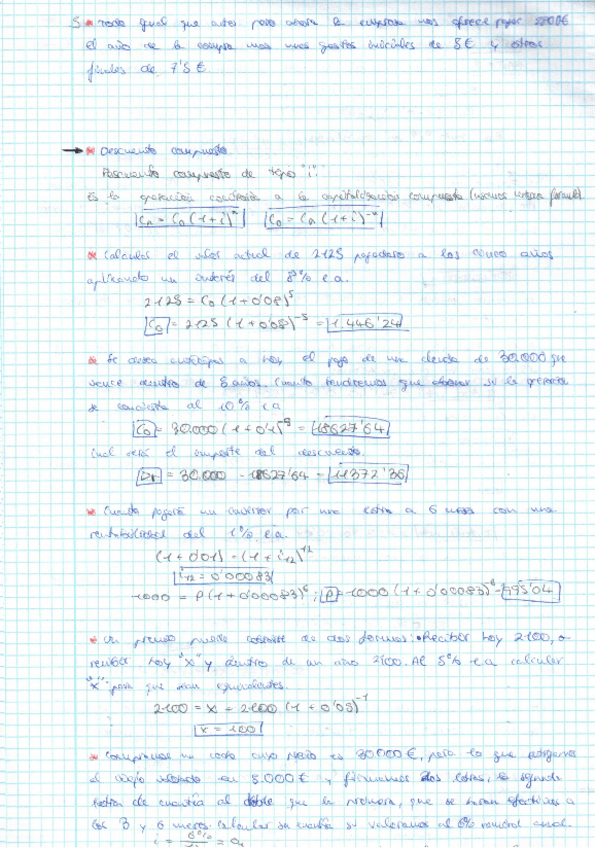 5 * Todo igual que antes pero ahora la empresa nos ofrece pagar
el año de la compra mas unos gastos iniciales de 8€ y otros
finales de 7'5 €
* Descuento compuesto
Descuento compuesto de tipo "i".
Es la operación contraria a la capitalización compuesta (misma formula)
Cn = C0 (1+i)^n   C0 = Cn (1+i)^-n
* Calcular el valor actual de 2125 pagadero a los cinco años
aplicando un interés del 8% e.a.
2125 = C0 (1+0'08)^5
C0 = 2125 (1+0'08)^-5 = 1.446'24
* Se desea anticipar a hoy el pago de una deuda de 30.000 que
vence dentro de 5 años. Cuanto tendremos que abonar si la operación
se concierta al 10% e.a
C0 = 30.000 (1+0'1)^-5 = 18627'64
cual será el importe del descuento.
= 30.000 - 18627'64 = 11372'36
* Cuanto pagará un inversor por una letra a 6 meses con una
rentabilidad del 1% e.a.
(1+0'01) = (1+i12)^12
i12 = 0'00083
1000 = P(1+0'00083)^6; P = 1000 (1+0'00083)^-6 = 995'04
* Un premio puede cobrarse de dos formas: Recibir hoy 2100, o
recibir hoy "X" y dentro de un año 2100. Al 5% e.a calcular
"X" para que sean equivalentes.
2100 = X + 2100 (1+0'05)^-1
X = 100
* Compramos un coche cuyo precio es 30.000€, para lo que
el viejo valorado en 5.000€ y firmamos dos letras, la segunda
letra de cuantía al doble que la primera, que se harán efectivas a
los 3 y 6 meses. Calcular su cuantía si valoramos al 6% nominal anual.
i = 6%